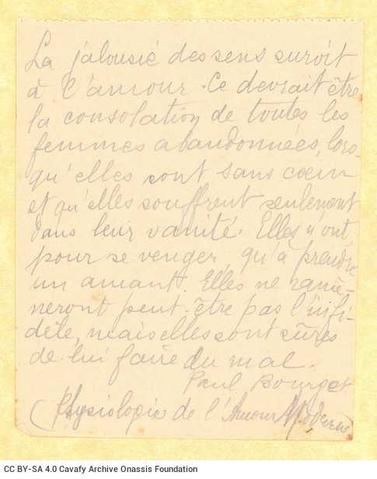 La jalousie des sens suroit
à l'amour. Ce devrait être
la consolation de toutes les
femmes abandonnées, lors-
qu'elles sont sans coeur
et qu'elles souffrent seulement
dans leur vanité. Elles n'ont
pour se venger, qu'à prendre
un amant. Elles ne ramè-
neront peut-être pas l'infi-
dèle, mais elles sont sûres
de lui faire du mal.
Paul Bourget
(Physiologie de l'Amour Moderne)
CC BY-SA 4.0 Cavafy Archive Onassis Foundation